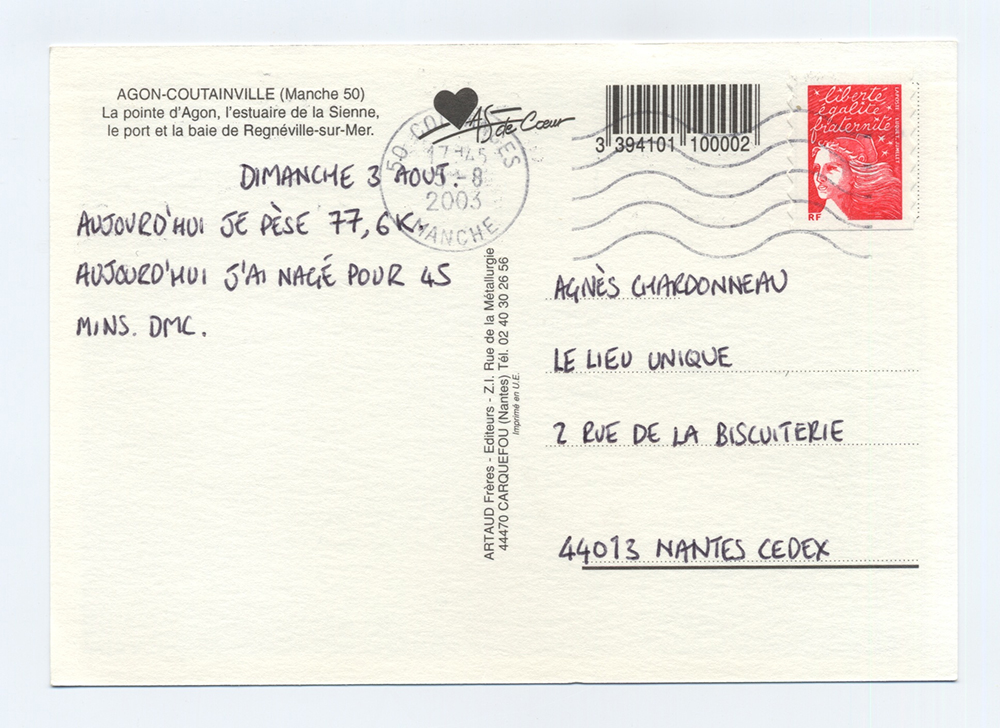 AGON-COUTAINVILLE (Manche 50)
La pointe d'Agon, l'estuaire de la Sienne,
le port et la baie de Regnéville-sur-Mer.
AS de Cœur
3 394101 100002
liberté
égalité
fraternité
RF
LA POSTE
50
17H45
-8
2003
MANCHE
DIMANCHE 3 AOUT.
AUJOURD'HUI JE PÈSE 77,6K.
AUJOURD'HUI J'AI NAGÉ POUR 45
MINS. DMC.
ARTAUD Frères - Editeurs - Z.I. Rue de la Métallurgie
44470 CARQUEFOU (Nantes) Tél. 02 40 30 26 56
Imprimé en U.E.
AGNÈS CHARDONNEAU
LE LIEU UNIQUE
2 RUE DE LA BISCUITERIE
44013 NANTES CEDEX